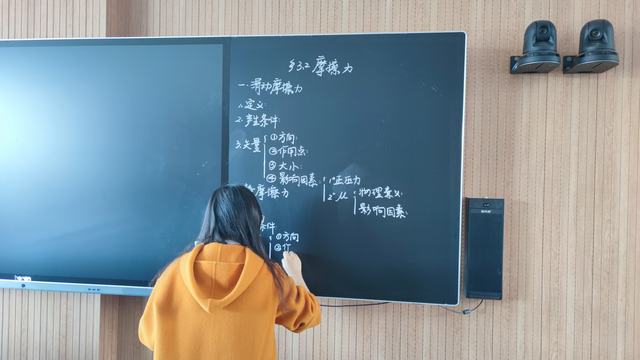 §3.2 摩擦力
一. 滑动摩擦力
1. 定义:
2. 产生条件:
3. 矢量 ①方向:
②作用点:
③大小:
④影响因素: 1° 正压力
2° μ 物理意义:
影响因素:
摩擦力
条件
①方向
②作